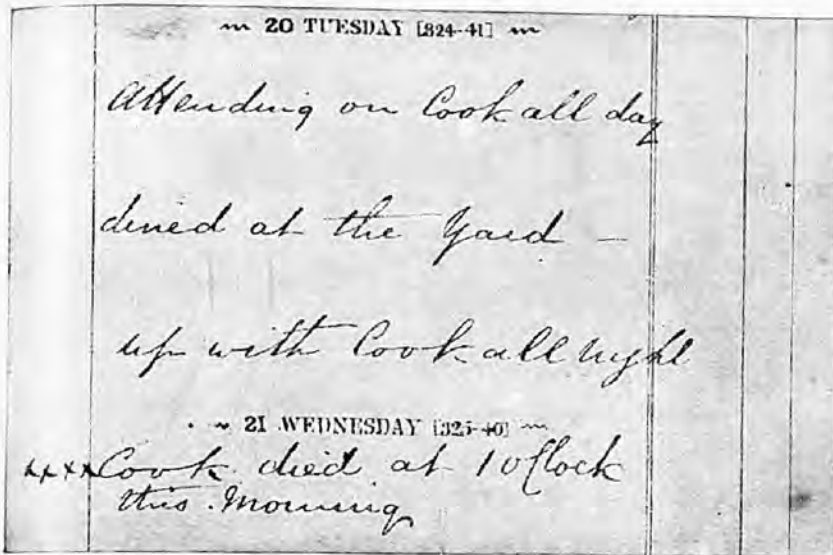 20 TUESDAY [324-41]
Attending on Cook all day
dined at the Yard —
up with Cook all night
21 WEDNESDAY [325-40]
xxxx Cook died at 1 oClock
this Morning